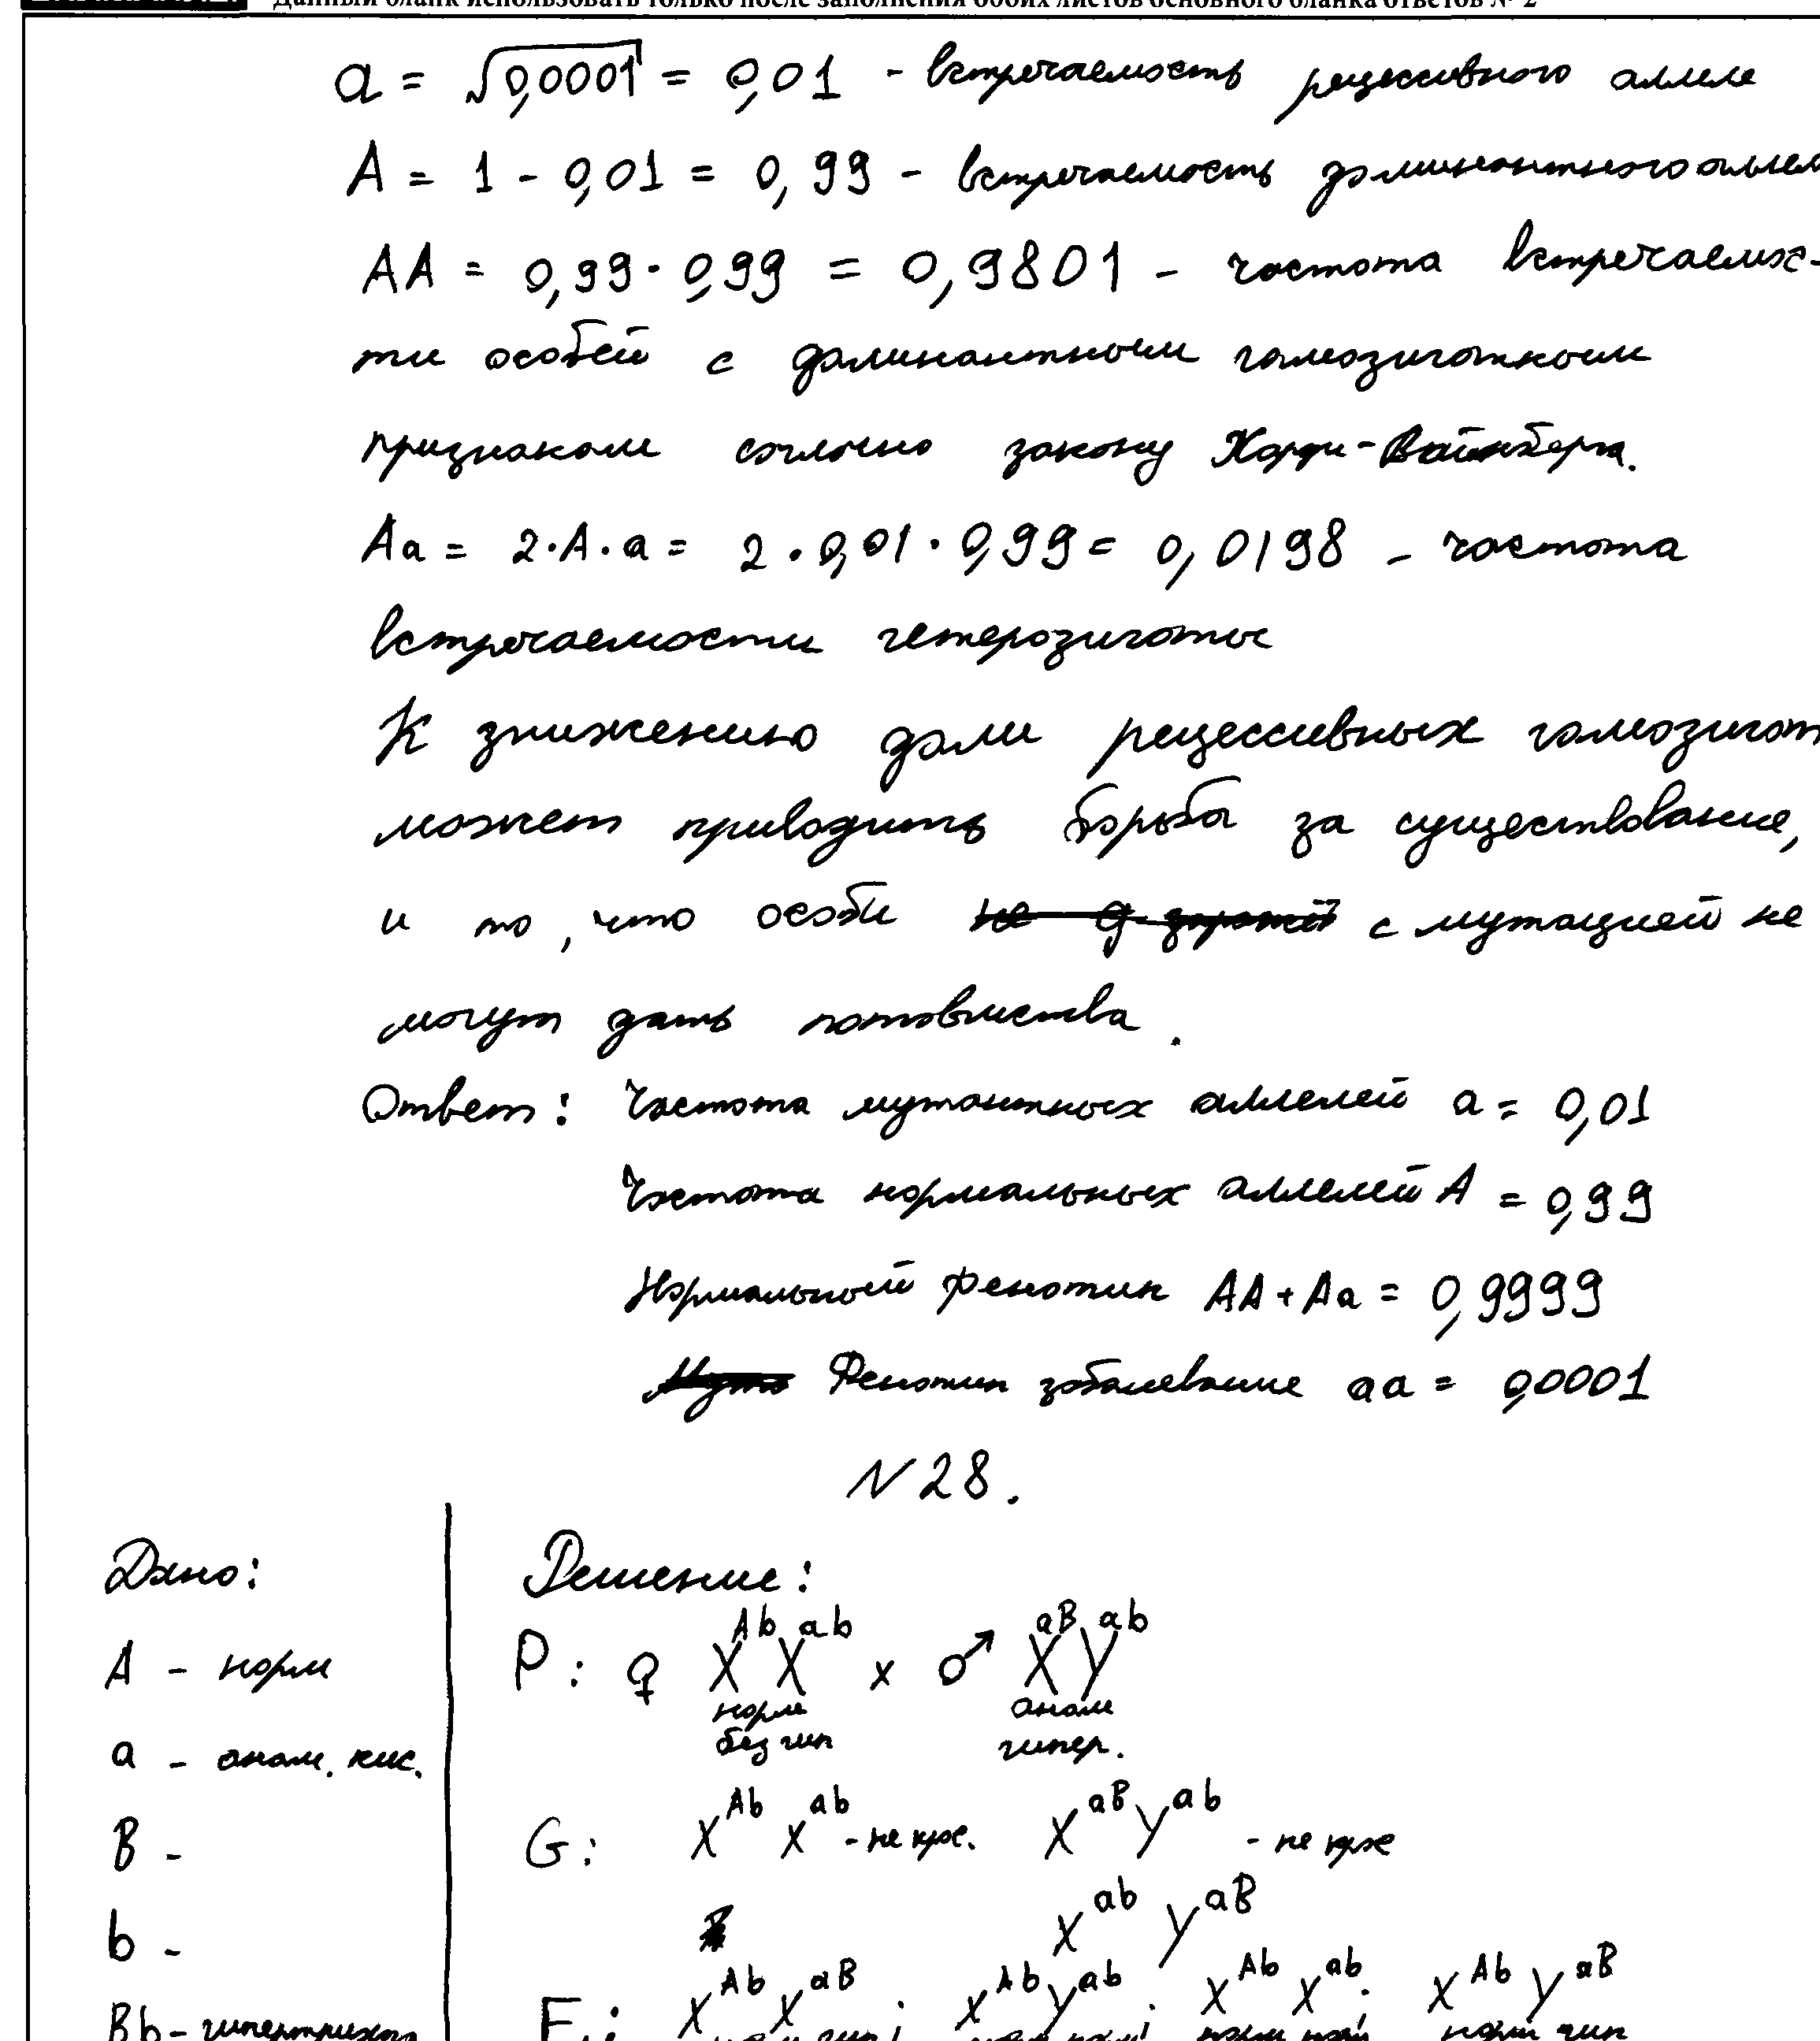 Данный бланк использовать только после заполнения обоих листов основного бланка ответов № 2
a = √0,0001 = 0,01 - встречаемость рецессивного аллеле
A = 1 - 0,01 = 0,99 - встречаемость доминантного аллел
AA = 0,99 · 0,99 = 0,9801 - частота встречаемос-
ти особей с доминантным гомозиготным
признаком согласно закону Харди-Вайнберга.
Aa = 2·A·a = 2·0,01·0,99 = 0,0198 - частота
встречаемости гетерозиготы
К знижению доли рецессивных гомозигот
может приводить борьба за существование,
и то, что особи с мутацией не
могут дать потомства.
Ответ: Частота мутантных аллелей a = 0,01
Частота нормальных аллелей A = 0,99
Нормальный фенотип AA + Aa = 0,9999
Фенотип заболевание aa = 0,0001
N 28.
Дано: Решение:
A - норм P: ♀ X^Ab X^ab x ♂ X^aB Y^ab
норм аном
без гип гипер.
a - аном. кис.
B - G: X^Ab X^ab - не крос. X^aB Y^ab - не крос
b - X^ab Y^aB
Bb - гипертрихоз F₁: X^Ab X^aB ; X^Ab Y^ab ; X^Ab X^ab ; X^Ab Y^aB
норм гип